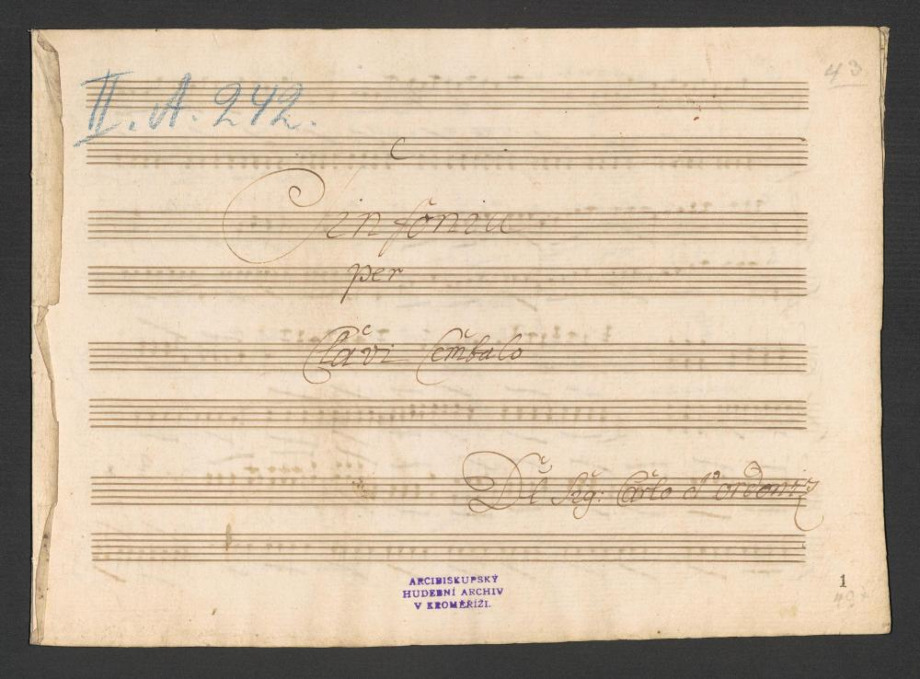 43
II. A. 242.
Sinfonia
per
Clavi Cembalo
Del Sig: Carlo d'ordoniz
ARCIBISKUPSKÝ
HUDEBNÍ ARCHIV
V KROMĚŘÍŽI.
1